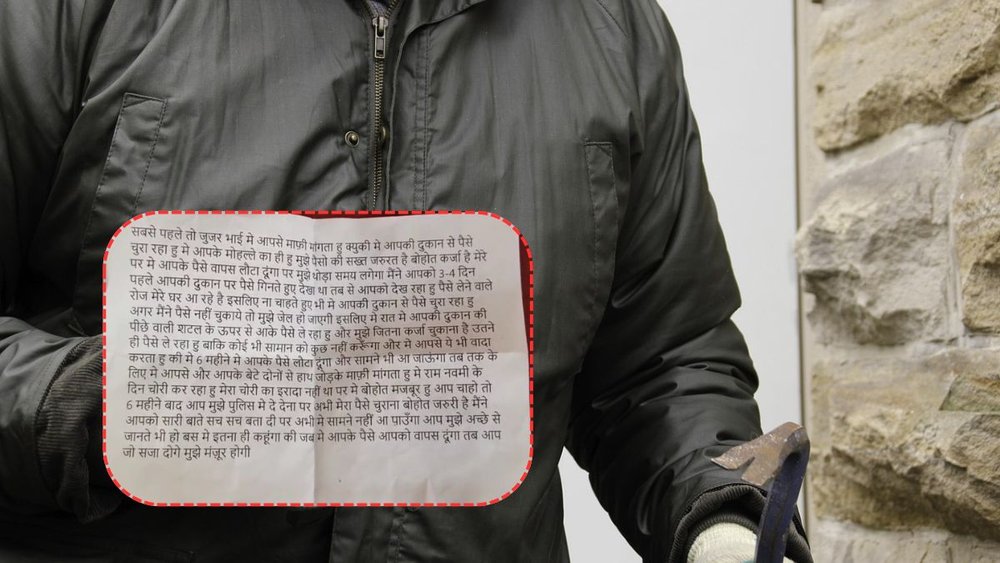 सबसे पहले तो जुजर भाई मे आपसे माफ़ी मांगता हु क्युकी मे आपकी दुकान से पैसे
चुरा रहा हु मे आपके मोहल्ले का ही हु मुझे पैसो की सख्त जरुरत है बोहोत कर्जा है मेरे
पर मे आपके पैसे वापस लौटा दूंगा पर मुझे थोड़ा समय लगेगा मैंने आपको 3-4 दिन
पहले आपकी दुकान पर पैसे गिनते हुए देखा था तब से आपको देख रहा हु पैसे लेने वाले
रोज मेरे घर आ रहे है इसलिए ना चाहते हुए भी मे आपकी दुकान से पैसे चुरा रहा हु
अगर मैंने पैसे नहीं चुकाये तो मुझे जेल हो जाएगी इसलिए मे रात मे आपकी दुकान की
पीछे वाली शटल के ऊपर से आके पैसे ले रहा हु और मुझे जितना कर्जा चुकाना है उतने
ही पैसे ले रहा हु बाकि कोई भी सामान को कुछ नहीं करूँगा और मे आपसे ये भी वादा
करता हु की मे 6 महीने मे आपके पैसे लौटा दूंगा और सामने भी आ जाऊंगा तब तक के
लिए मे आपसे और आपके बेटे दोनों से हाथ जोड़के माफ़ी मांगता हु मे राम नवमी के
दिन चोरी कर रहा हु मेरा चोरी का इरादा नहीं था पर मे बोहोत मजबूर हु आप चाहो तो
6 महीने बाद आप मुझे पुलिस मे दे देना पर अभी मेरा पैसे चुराना बोहोत जरुरी है मैंने
आपको सारी बाते सच सच बता दी पर अभी मे सामने नहीं आ पाउँगा आप मुझे अच्छे से
जानते भी हो बस मे इतना ही कहूंगा की जब मे आपके पैसे आपको वापस दूंगा तब आप
जो सजा दोगे मुझे मंज़ूर होगी